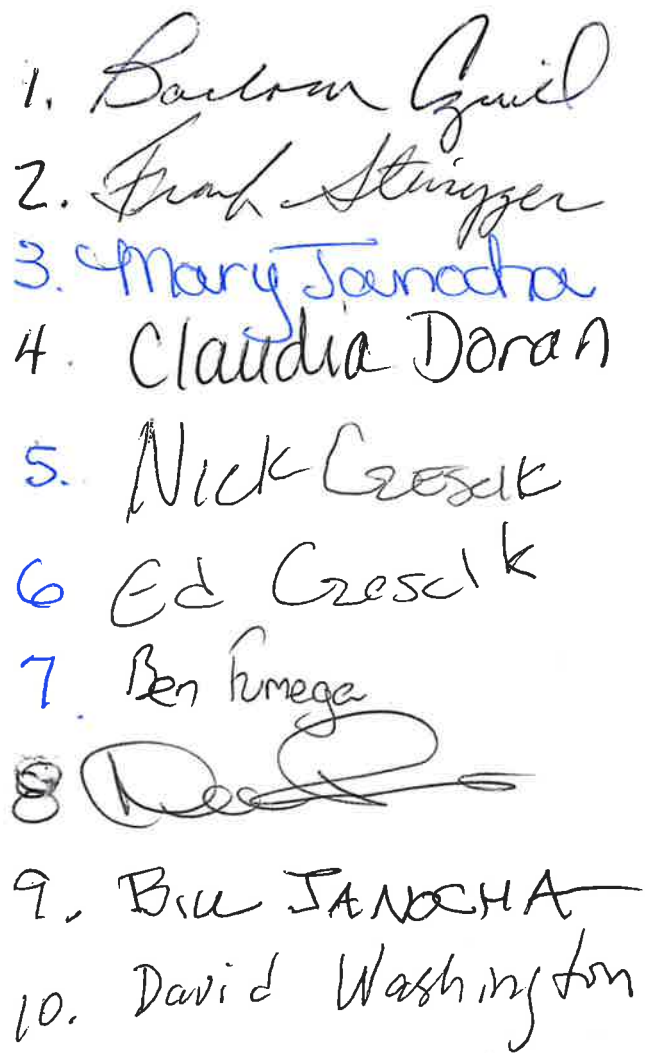 1. Barbara
2. Frank Steinegger
3. Mary Janocha
4. Claudia Doran
5. Nick Czescik
6 Ed Czescik
7. Ben Fumega
8
9. Bill JANOCHA
10. David Washington